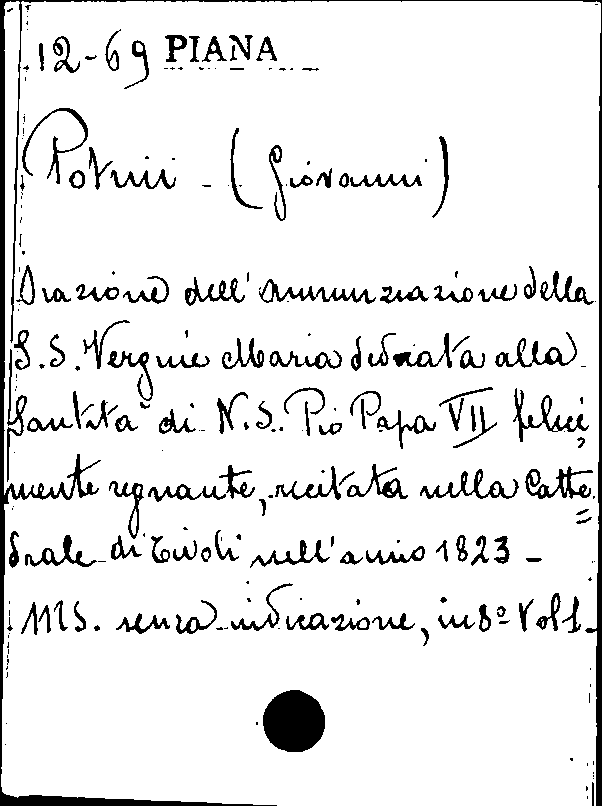 12-69 PIANA
Potini - (Giovanni)
Orazione dell'annunziazione della
S.S. Vergine Maria dedicata alla
Santità di N.S. Pio Papa VII felice=
mente regnante, recitata nella Catte=
drale di Tivoli nell'anno 1823 -
MS. senza indicazione, in 8º Vol 1.